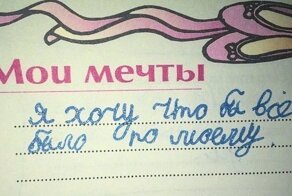 Мои мечты
Я хочу што бы всё
было по моему.